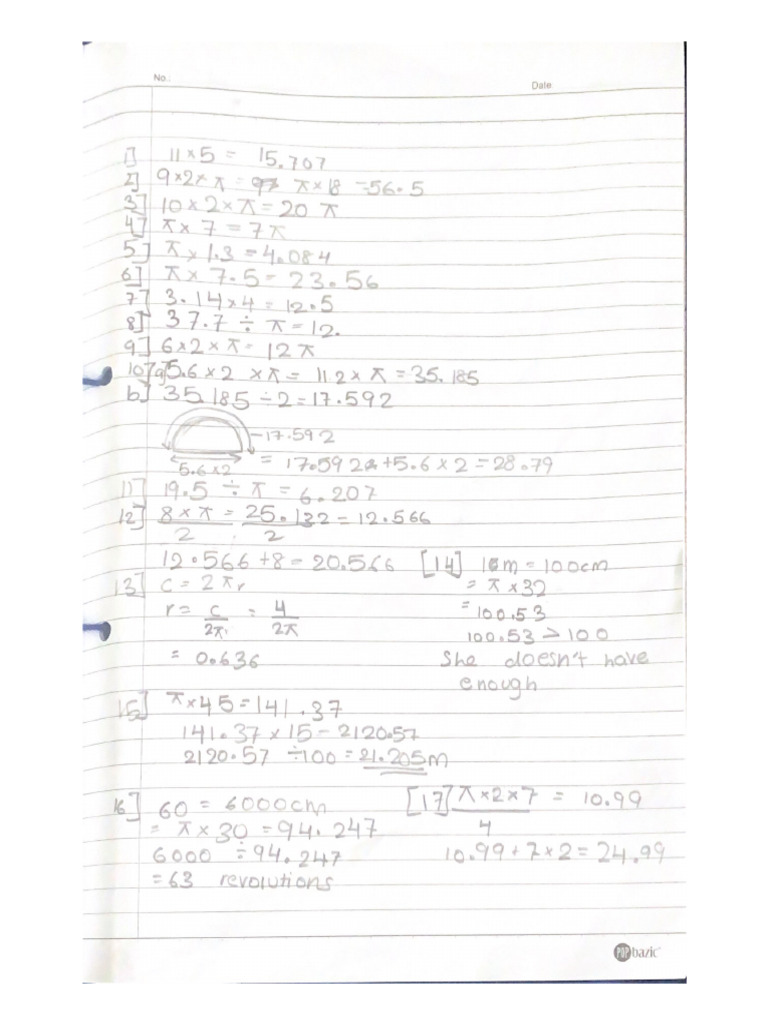 No.:
Date
1] 11 × 5 = 15.707
2] 9×2×π = π×18 = 56.5
3] 10×2×π = 20π
4] π× 7 = 7π
5] π× 1.3 = 4.084
6] π× 7.5 = 23.56
7] 3.14×4 = 12.5
8] 37.7 ÷ π = 12.
9] 6×2×π = 12π
10] a] 5.6×2 ×π = 112×π = 35.185
b] 35.185 ÷2 = 17.592
-17.592
5.6×2
= 17.592+5.6×2 = 28.79
11] 19.5 ÷ π = 6.207
12] 8×π/2 = 25.132/2 = 12.566
12.566+8 = 20.566
13] C = 2πr
r = c/2π = 4/2π
= 0.636
[14] 1m = 100cm
= π×32
= 100.53
100.53 > 100
She doesn't have
enough
15] π×45 = 141.37
141.37 ×15 - 2120.57
2120.57 ÷100 = 21.205m
16] 60 = 6000cm
= π×30 = 94.247
6000 ÷94.247
= 63 revolutions
[17] π×2×7/4 = 10.99
10.99+7×2 = 24.99
POP bazic